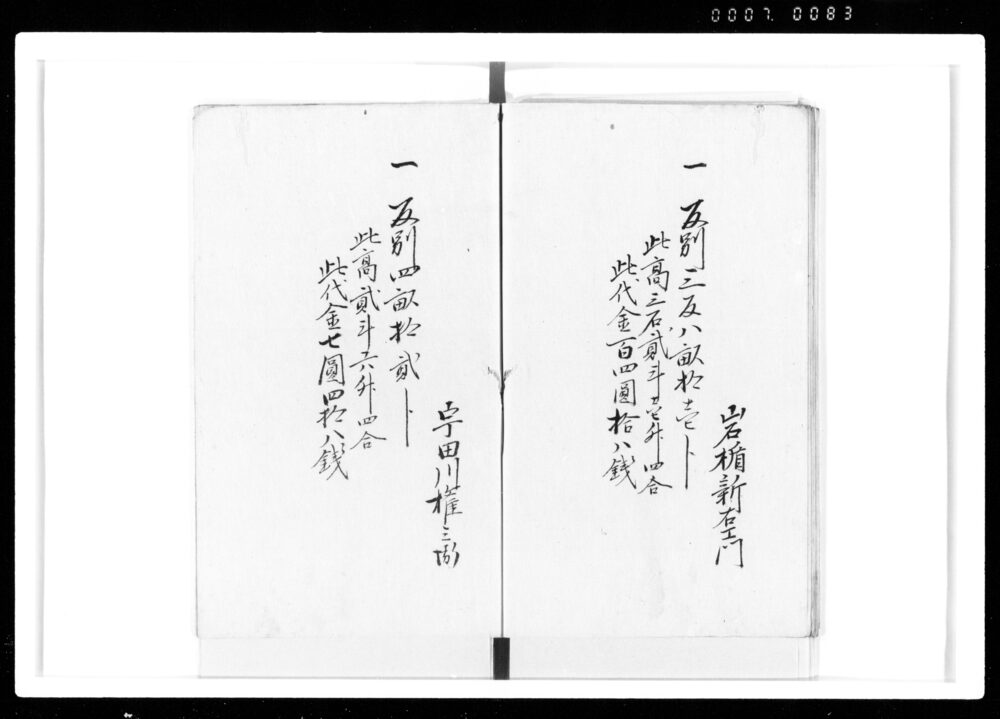 0007. 0083
岩楯新右エ門
一 反別三反八畝拾壱卜
此高三石貳斗壱升四合
此代金百四圓拾八銭
宇田川権三郎
一 反別四畝拾貳卜
此高貳斗六升四合
此代金七圓四拾八銭